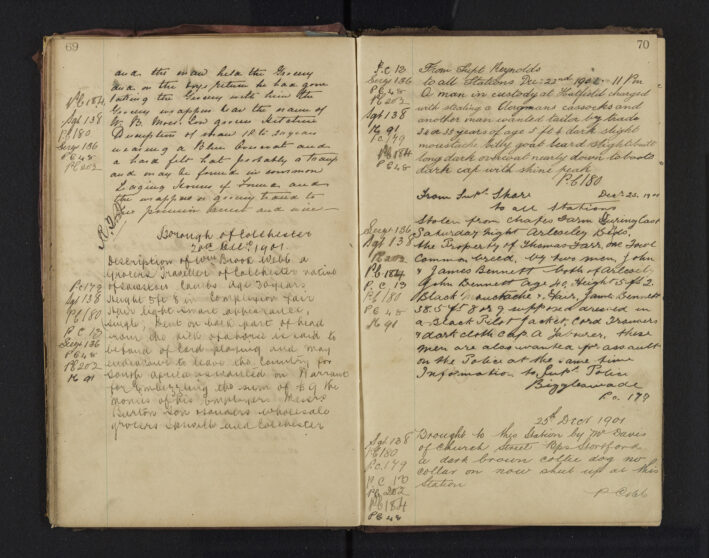 69
and the man held the Grocery
and on the boys return he had gone
taking the Grocery with him the
Grocery wrapper bear the name of
Description of man 18 to 20 years
wearing a Blue Overcoat and
a hard felt hat probably a Tramp
and may be found in common
Lodging Houses if Found and
the wrapper or grocery traced to
his possession arrest and wire
PC 184
Sgt 138
PC 180
Sergt 136
PC 48
PC 202
Borough of Colchester
20th Decr 1901.
Description of Wm Brook Webb a
grocers Traveller of Colchester native
of Cambs age 30 years
Height 5ft 8 in Complexion fair
Hair light smart appearance,
single, Dent on back part of head
from the kick of a horse is said to
be fond of Card playing and may
endeavour to leave the Country for
South Africa is wanted on Warrant
for Embezzling the sum of £4 the
monies of his Employers Messrs
Burton Son & Sanders wholesale
grocers Ipswich and Colchester
PC 179
Sgt 138
PC 180
P C 13
Sergt 136
PC 48
PC 202
PC 91
70
From Supt Reynolds
to all Stations Dec 23rd 1901 11 Pm
A man in custody at Hatfield charged
with stealing a Clergymans cassocks and
another man wanted tailor by trade
34 or 35 years of age 5 ft 6 dark slight
moustache billy goat beard slight built
long dark overcoat nearly down to boots
dark cap with shine peak
PC 180
P.C 13
Sergt 136
PC 48
PC 202
Sgt 138
PC 91
PC 179
PC 184
PC 48
From Supt Shore Decr 23. 1901
to all Stations
Stolen from Chapes Farm During Last
Saturday Night Arlesley Beds,
the Property of Thomas Farr, one Fowl
Common breed, by two men, John
& James Bennett both of Arlesey
John Bennett age 40, Height 5 ft 2.
Black Moustache & Hair, James Bennett
38. 5 ft 8 or 9 supposed dressed in
a Black Pilot Jacket Cord Trousers
& dark cloth Cap. A Labourer, these
men are also wanted for assault
on the Police at the same time
Information to Supt Police
Biggleswade
P.c. 179
Sergt 136
Sgt 138
PC 202
PC 184
P. C 13
PC 180
PC 48
PC 91
25th Decr 1901
Brought to this Station by Mr Davis
of Church Street Bps Stortford
a dark brown collie dog no
collar on now shut up at this
Station
P Cobb
Sgt 138
PC 180
PC. 179
P C 13
PC 202
PC 184
PC 48